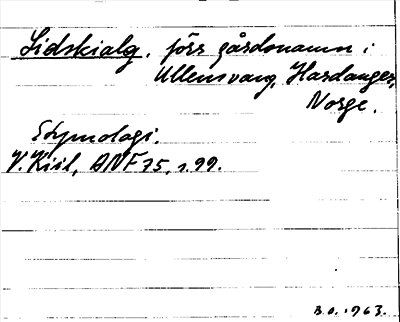 Lidskialg, förs gårdsnamn i
Ullensvang, Hardanger,
Norge.
Etymologi.
V. Kiil, ANF 75, s. 99.
B.O. 1963.